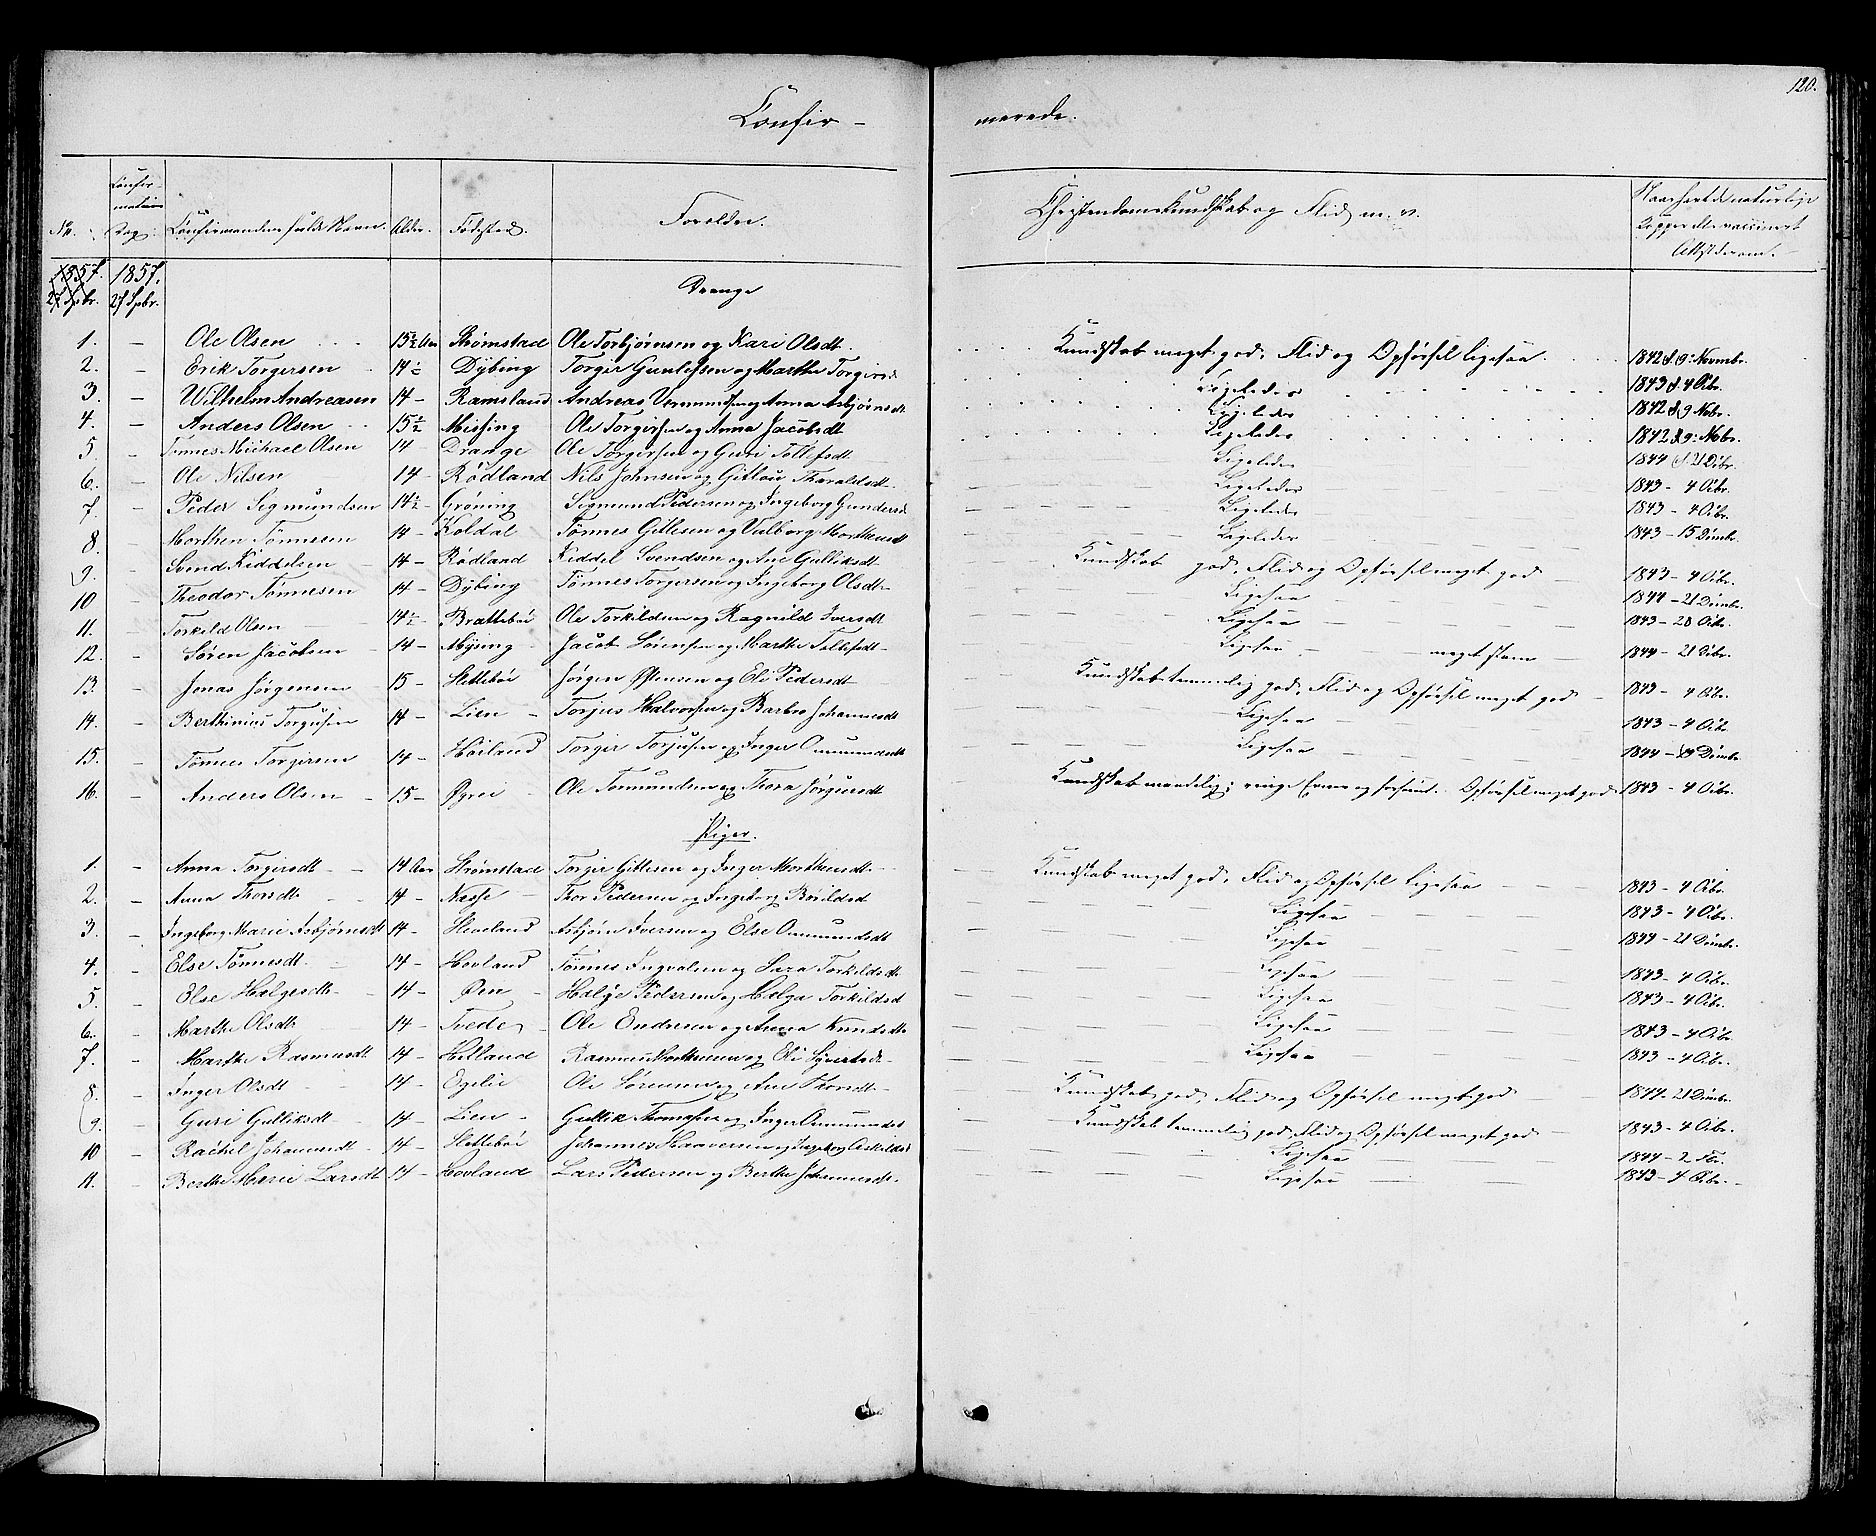 120.
Confir- merede.
No. Confirmations Dag. Confirmandens fulde Navn. Alder. Fødested. Forældre. Christendomskundskab og Flid m. v. Naar havt de naturlige Kopper eller vaccineret Attest derom.
1857. 27 Spbr. 1857. 27 Spbr. Drenge
1. — Ole Olsen 15½ Aar Strømstad Ole Torbjørnsen og Kari Olsdt. Kundskab meget god, Flid og Opførsel ligesaa. 1842 d. 9: Novmbr.
2. — Erik Torgersen 14½ Dybing Torger Gunlefsen og Marthe Torgersd Ligeledes 1843 d. 4 Octbr.
3. — Wilhelm Andreasen 14 — Ramsland Andreas og Anna Asbjørnsdt Ligeledes 1842 d. 9 Nobr.
4. — Anders Olsen 15½ Missing Ole Torgersen og Anna Jacobsdt Ligeledes 1842 d. 9: Nobr.
5. — Tønnes Michael Olsen 14 — Drange Ole Torgersen og Guri Tollefsdt Ligeledes 1844 d. 21 Dcbr.
6. — Ole Nilsen 14 — Rødland Nils Johnsen og Gitlou Tharaldsdt. Ligeledes 1843 — 4 Octbr.
7. — Peder Sigmundsen 14½ Grøning Sigmund Pedersen og Ingeborg Gundersd. Ligeledes 1843 — 4 Octbr.
8. — Morthen Tønnesen 14 — Koldal Tønnes Gitlesen og Valborg Morthensdt Ligeledes 1843 — 15 Dcmbr.
9. — Svend Kiddelsen 14 — Rødland Kiddel Svendsen og Ane Gulliksdt Kundskab god, Flid og Opførsel meget god 1843 — 4 Octbr.
10 — Theodor Tønnesen 14 — Dybing Tønnes Torgersen og Ingeborg Olsdt. Ligesaa 1844 — 21 Dcmbr.
11. — Torkild Olsen 14½ Brattebøe Ole Torkildsen og Ragnild Iversdt Ligesaa 1843 — 28 Octbr.
12. — Søren Jacobsen 14 — Mysing Jacob Sørensen og Marthe Tollefsdt Ligesaa — meget stam 1844 — 21 Dcbr.
13. — Jonas Jørgensen 15 — Slettebøe Jørgen Østensen og Eli Pedersdt Kundskab temmelig god, Flid og Opførsel meget god 1843 — 4 Octbr.
14. — Berthinius Torjusen 14 — Lien Torjus Halvorsen og Barbro Johannesdt Ligesaa 1843 — 4 Octbr.
15. — Tønnes Torgersen 14 — Høiland Torger Torjusen og Inger Omundsdt Ligesaa 1844 — Dcmbr.
16. — Anders Olsen 15 — Øgrei Ole Tormundsen og Thora Jørgensdt Kundskab maadelig; ringe Evner og forsømt. Opførsel meget god 1843 — 4 Octbr.
Piger.
1. — Anna Torgersdt 14 Aar Strømstad Torger Gitlesen og Inger Morthensdt. Kundskab meget god, Flid og Opførsel ligesaa 1843 — 4 Octbr.
2. — Anna Thorsdt 14 — Thor Pedersen og Ingeborg Bårildsd Ligesaa 1843 — 4 Octbr.
3. — Ingeborg Marie Asbjørnsdt 14 — Steneland Asbjørn Iversen og Else Omundsdt Ligesaa 1844 — 21 Dcmbr.
4. — Else Tønnesdt. 14 — Hovland Tønnes Ingvalsen og Sara Torkildsdt Ligesaa 1843 — 4 Octbr.
5. — Else Helgesdt. 14 — Øen Helge Pedersen og Helga Torkildsd Ligesaa 1843 — 4 Octbr.
6. — Marthe Olsdt 14 — Tveden Ole Endresen og Anna Knudsdt Ligesaa 1843 — 4 Octbr.
7. — Marthe Rasmusdt 14 — Helland Rasmus Morthensen og Eli Syvertsdt. Ligesaa 1843 — 4 Octbr.
8. — Inger Olsdt 14 — Egelie Ole Sørensen og Ane Thorsdt. Kundskab god, Flid og Opførsel meget god 1844 — 21 Dcmbr.
9. — Guri Gulliksdt 14 — Lien Gullik Thomassen og Inger Omundsdt Kundskab temmelig god, Flid og Opførsel meget god 1843 — 4 Octbr.
10 — Rachel Johannesdt 14 — Slettebøe Johannes og Ingeborg Ligesaa 1844 — 2
11. — Berthe Marie Larsdt 14 — Hovland Lars Pedersen og Berthe Johannesdt. Ligesaa 1843 — 4 Octbr.